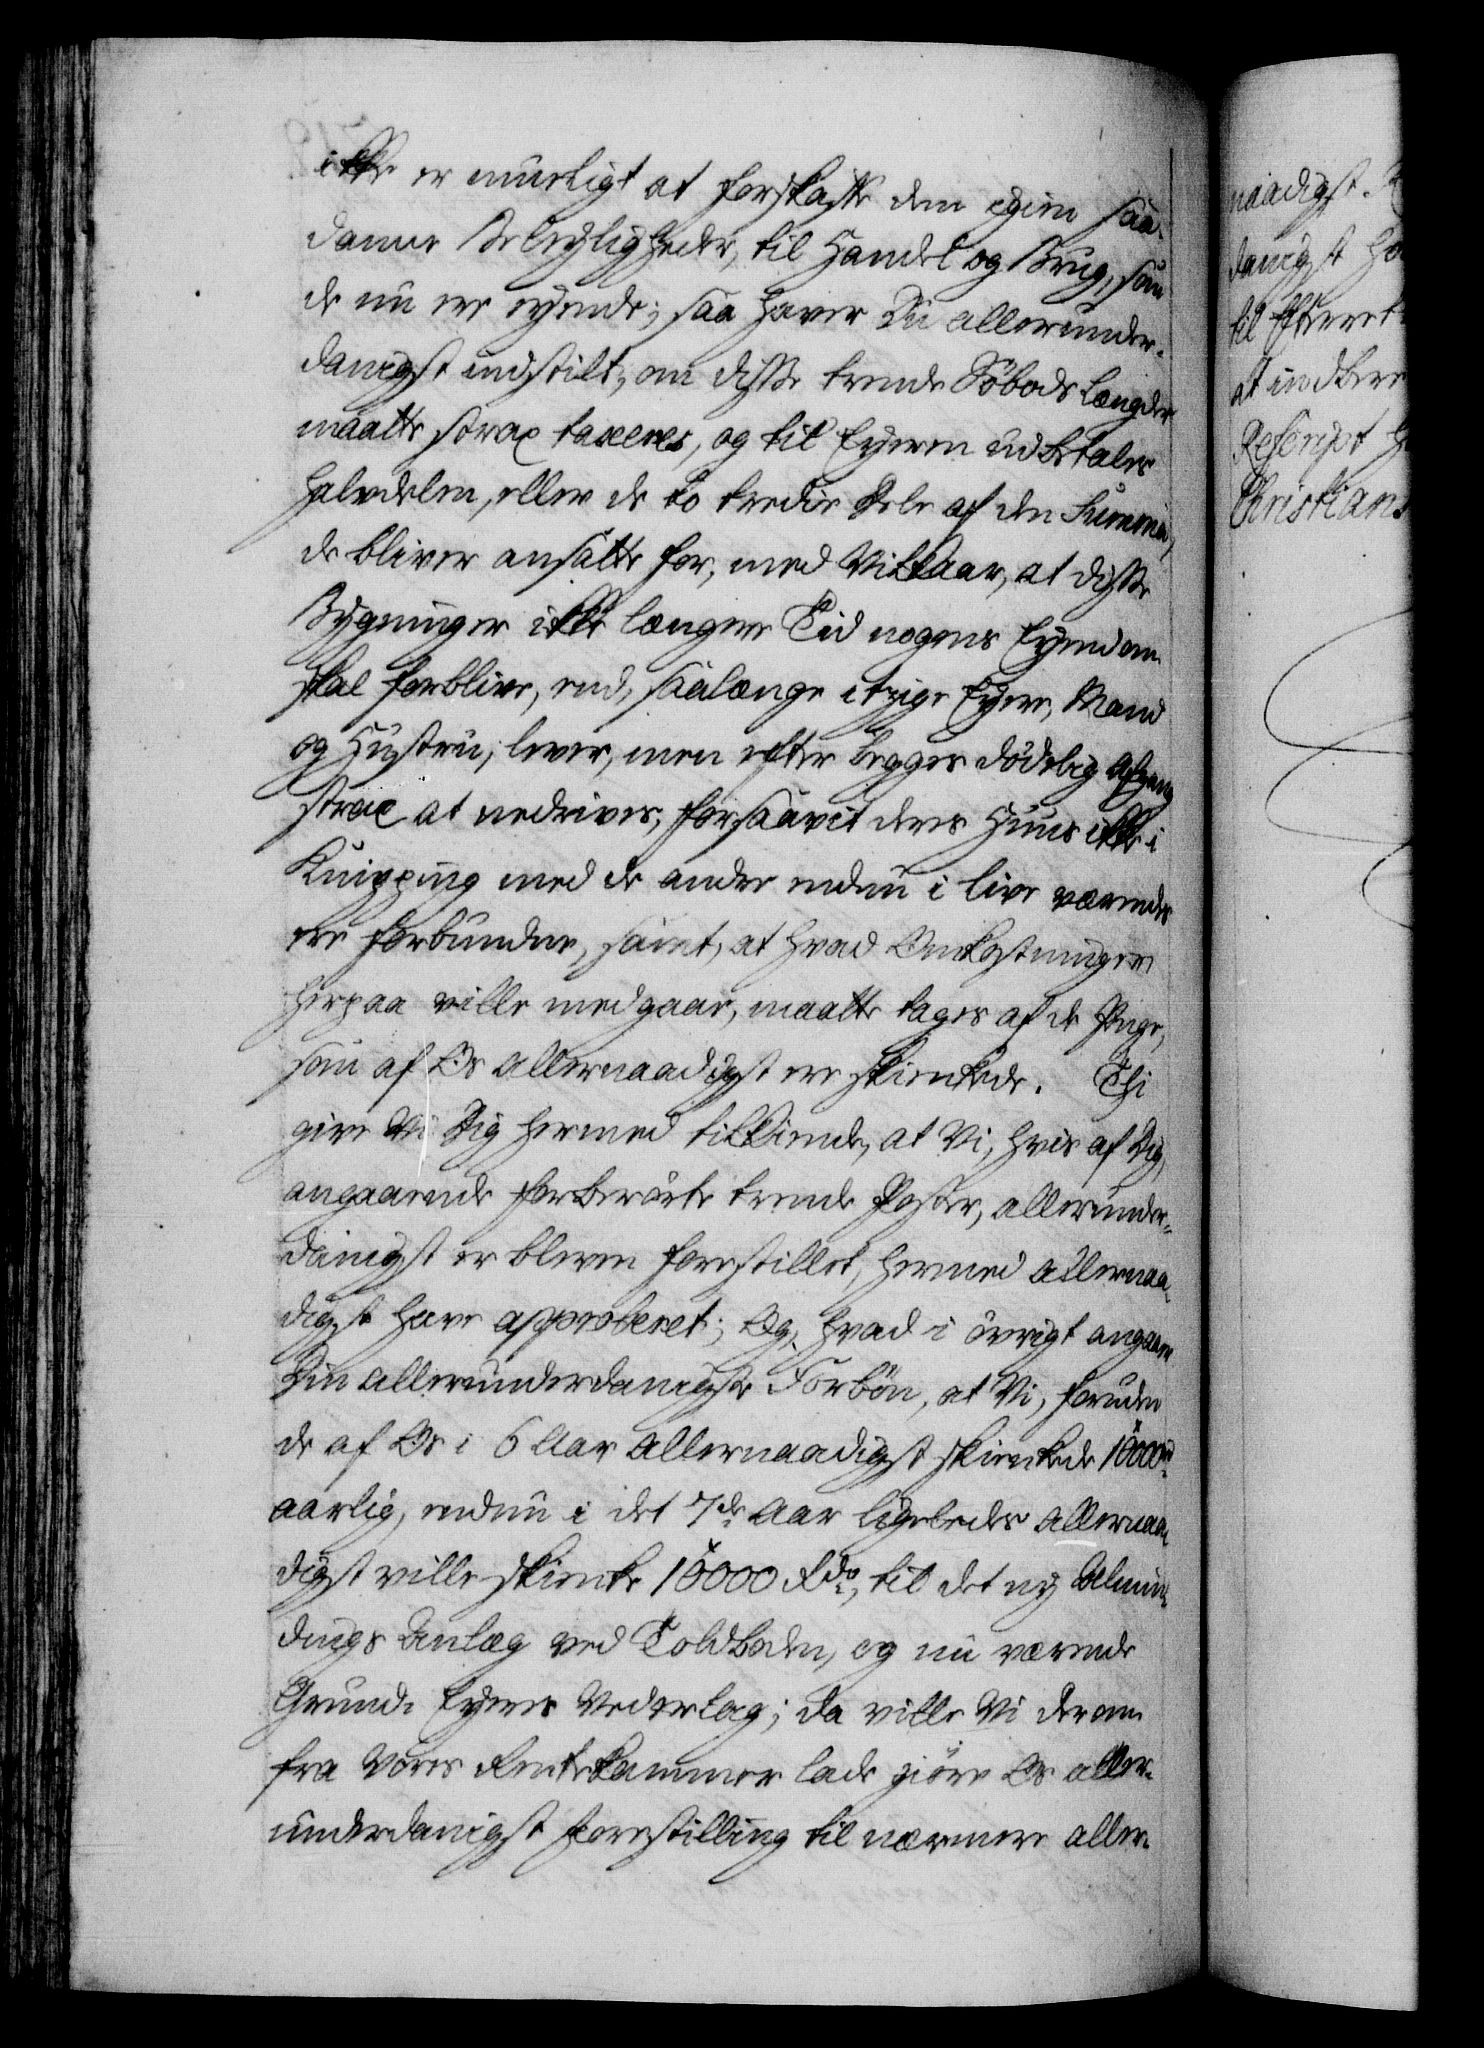 ikke er mueligt at forskaffe dem igien saa-
danne Beleyligheder, til Handel og Brug, som
de nu ere eyende; saa haver Du allerunder-
danigst indstilt, om disse trende Söbods Længder
maatte strax taxeres, og til Eyeren udbetales
halvdelen, eller de to tredie Dele af den Summa,
de bliver ansatte for, med Vilkaar, at disse
Bygninger ikke længere Tid nogens Eyendom
skal forblive, end, saalænge itzige Eyere, Mand
og Hustru, lever, men efter begges dödelig Afgang
strax at nedrives, forsaavit deres Huus ikke i
Knipping med de andre endnu i live værende
ere forbundne, samt, at hvad Omkostninger
herpaa ville medgaae, maatte tages af de Penge,
som af Os allernaadigst ere skienkede. Thi
give Vi Dig hermed tilkiende, at Vi, hvis af Dig,
angaaende forberörte trende Poster, allerunder-
danigst er bleven forestillet, hermed allernaa-
digst have approberet; Og, hvad i övrigt angaaer
Din allerunderdanigste Forbön, at Vi, foruden
de af Os i 6 Aar allernaadigst skienkede 10000 rd
aarlig, endnu i det 7de Aar ligeledes allernaa-
digst ville skienke 10000 Rdr, til det ny Almin-
dings Anlæg ved Toldboden, og nu værende
Grund-Eyeres Vederlag; da ville Vi derom
fra Vores Rentekammer lade giöre Os aller-
underdanigst forestilling til nærmere aller-
naadigst
danigst
til Efterret
at indbere
Rescript
Christians